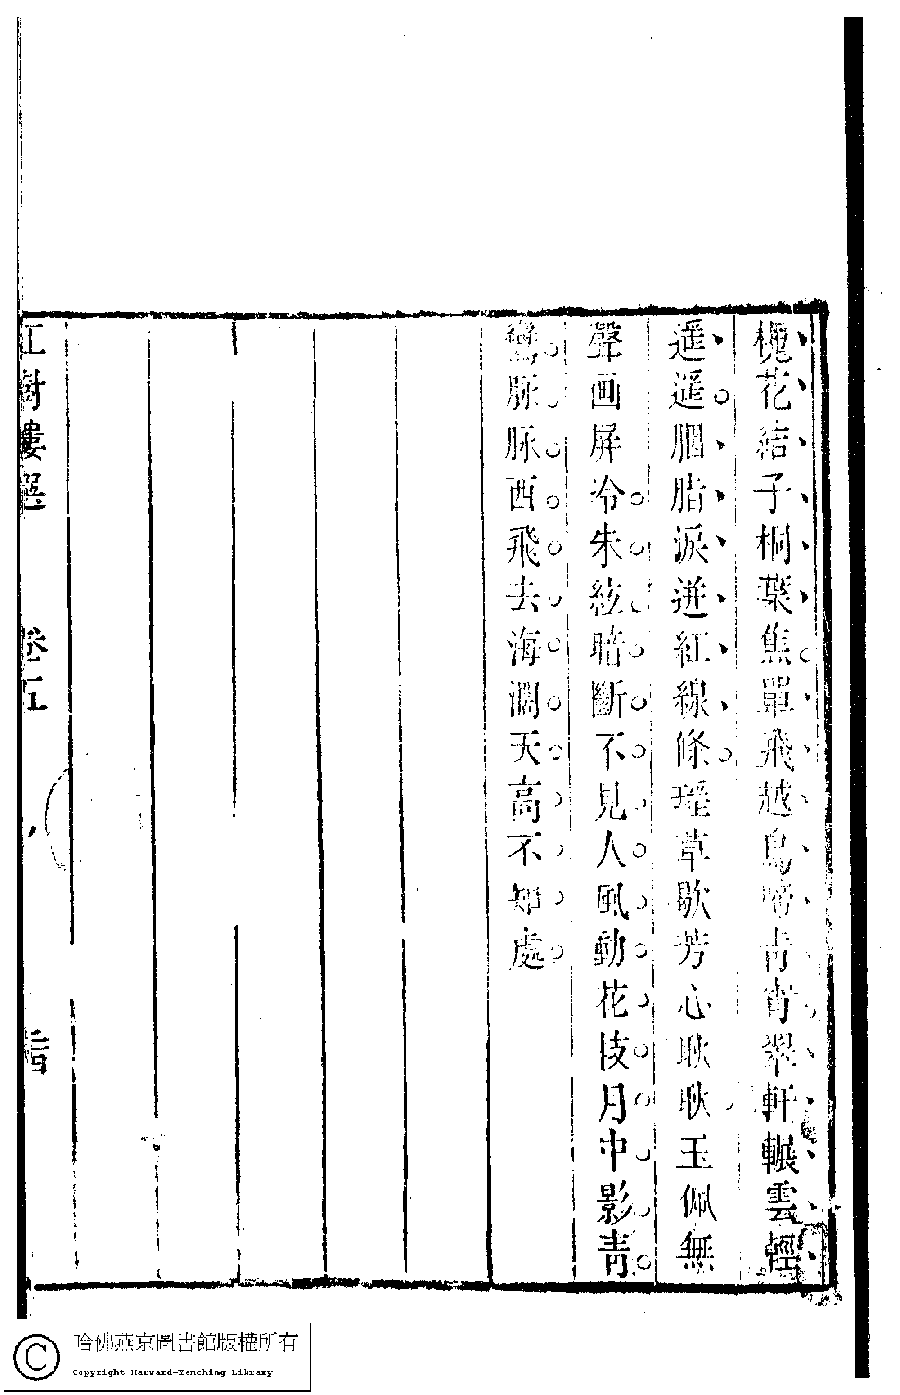 槐花結子桐葉焦單飛越鳥啼青霄翠軒輾雲輕
遥遥胭脂淚迸紅線條瑶草歇芳心耿耿玉佩無
聲画屏冷朱絃暗斷不見人風動花枝月中影青
鸞脉脉西飛去海濶天高不知處
紅樹樓選 卷五
哈佛燕京圖書館版權所有
Copyright Harvard-Yenching Library